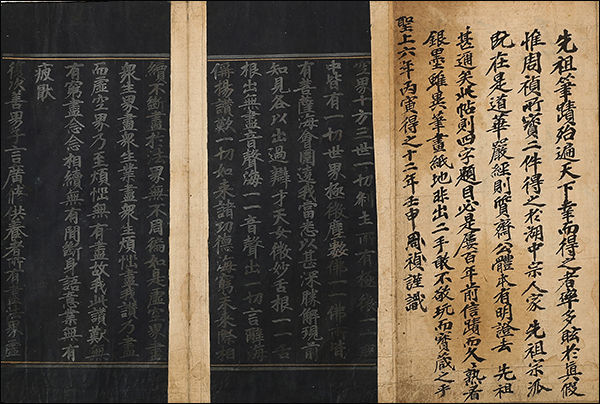 先祖筆蹟殆遍天下幸而得之者率多眩於真假
惟周禎所寶二件得之於湖中宗人家 先祖宗派
旣在是道華嚴經則質齋公體本有明證去 先祖
甚通矣此帖則四字題目必是屢百年前信蹟而久熟者
銀墨雖異筆畫紙地非出二手敢不敬玩而寶藏之乎
聖上六年丙寅得之十二年壬申周禎謹識
空界十方三世一切刹土所有極微一一塵
中皆有一切世界極微塵數佛一一佛所皆
有菩薩海會圍遶我當悉以甚深勝解現前
知見各以出過辯才天女微妙舌根一一舌
根出無盡音聲海一一音聲出一切言辭海
稱揚讚歎一切如來諸功德海窮未來際相
續不斷盡於法界無不周徧如是虛空界盡
衆生界盡衆生業盡衆生煩惱盡我讚乃盡
而虛空界乃至煩惱無有盡故我此讚歎無
有窮盡念念相續無有間斷身語意業無有
疲厭
復次善男子言廣修供養者所有盡法界虛